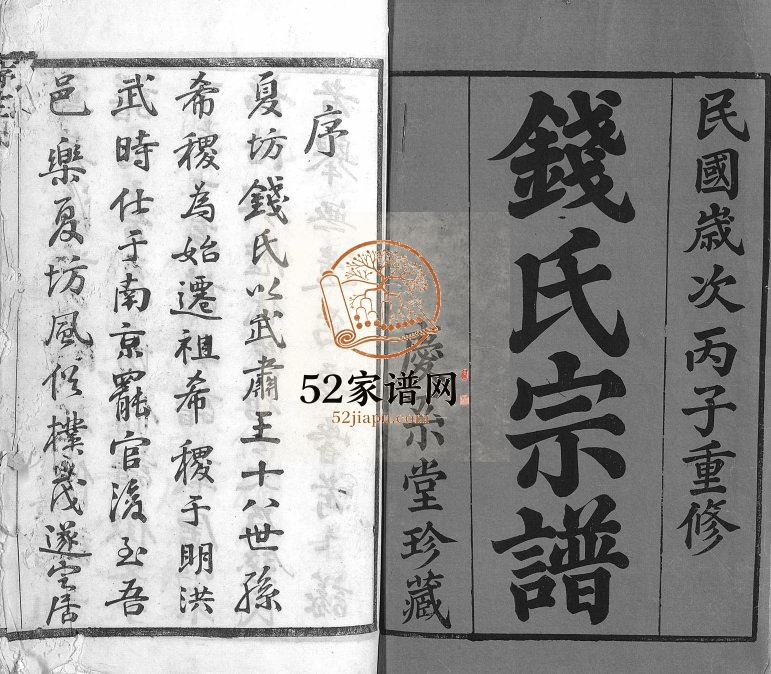 民國歲次丙子重修
錢氏宗譜
宗堂珍藏
序
夏坊錢氏以武肅王十八世孫
希稷為始遷祖希稷于明洪
武時仕于南京罷官後至吾
邑樂夏坊風俗樸茂遂定居
52家谱网
52jiapu.com